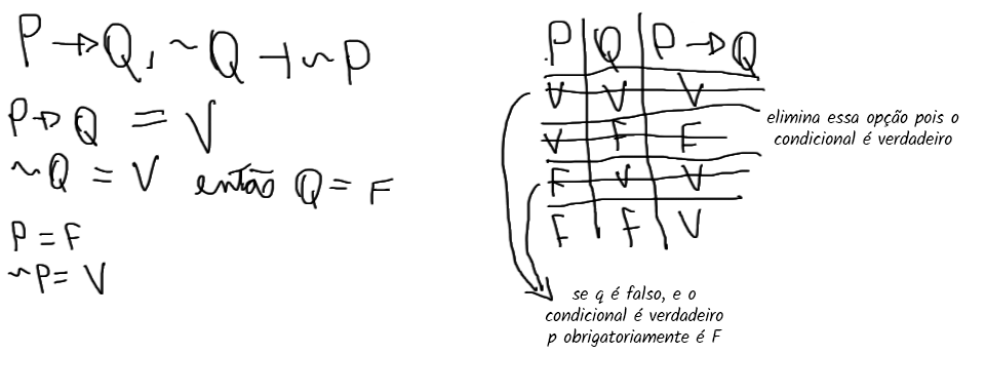 P → Q, ~Q ⊣ ~P
P → Q = V
~Q = V então Q = F
P = F
~P = V
P | Q | P → Q
V | V | V
V | F | F
F | V | V
F | F | V
elimina essa opção pois o
condicional é verdadeiro
se q é falso, e o
condicional é verdadeiro
p obrigatoriamente é F